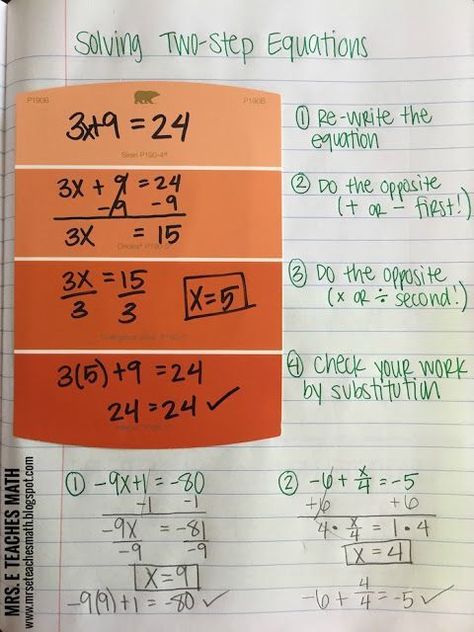 Solving Two-Step Equations
P190B
P190B
3x+9 = 24
① Re-write the
equation
3x + 9 = 24
-9 -9
3x = 15
② Do the opposite
(+ or - first!)
3x = 15
3 3
x=5
③ Do the opposite
(x or ÷ second!)
3(5)+9 = 24
24 = 24 ✓
④ Check your work
by substitution
① -9x+1 = -80
-1 -1
-9x = -81
-9 -9
x=9
-9(9)+1 = -80 ✓
② -6 + x/4 = -5
+6 +6
4 · x/4 = 1 · 4
x = 4
-6 + 4/4 = -5 ✓
MRS. E TEACHES MATH
www.mrseteachesmath.blogspot.com